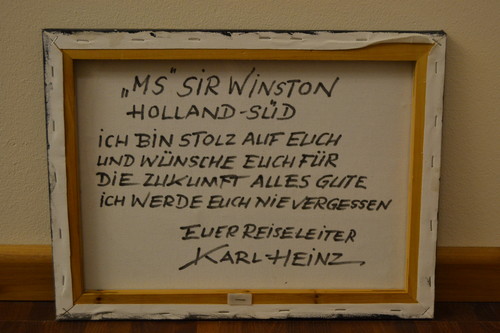 „MS" SIR WINSTON
HOLLAND-SÜD
ICH BIN STOLZ AUF EUCH
UND WÜNSCHE EUCH FÜR
DIE ZUKUMFT ALLES GUTE
ICH WERDE EUCH NIE VERGESSEN
EUER REISELEITER
KARL-HEINZ